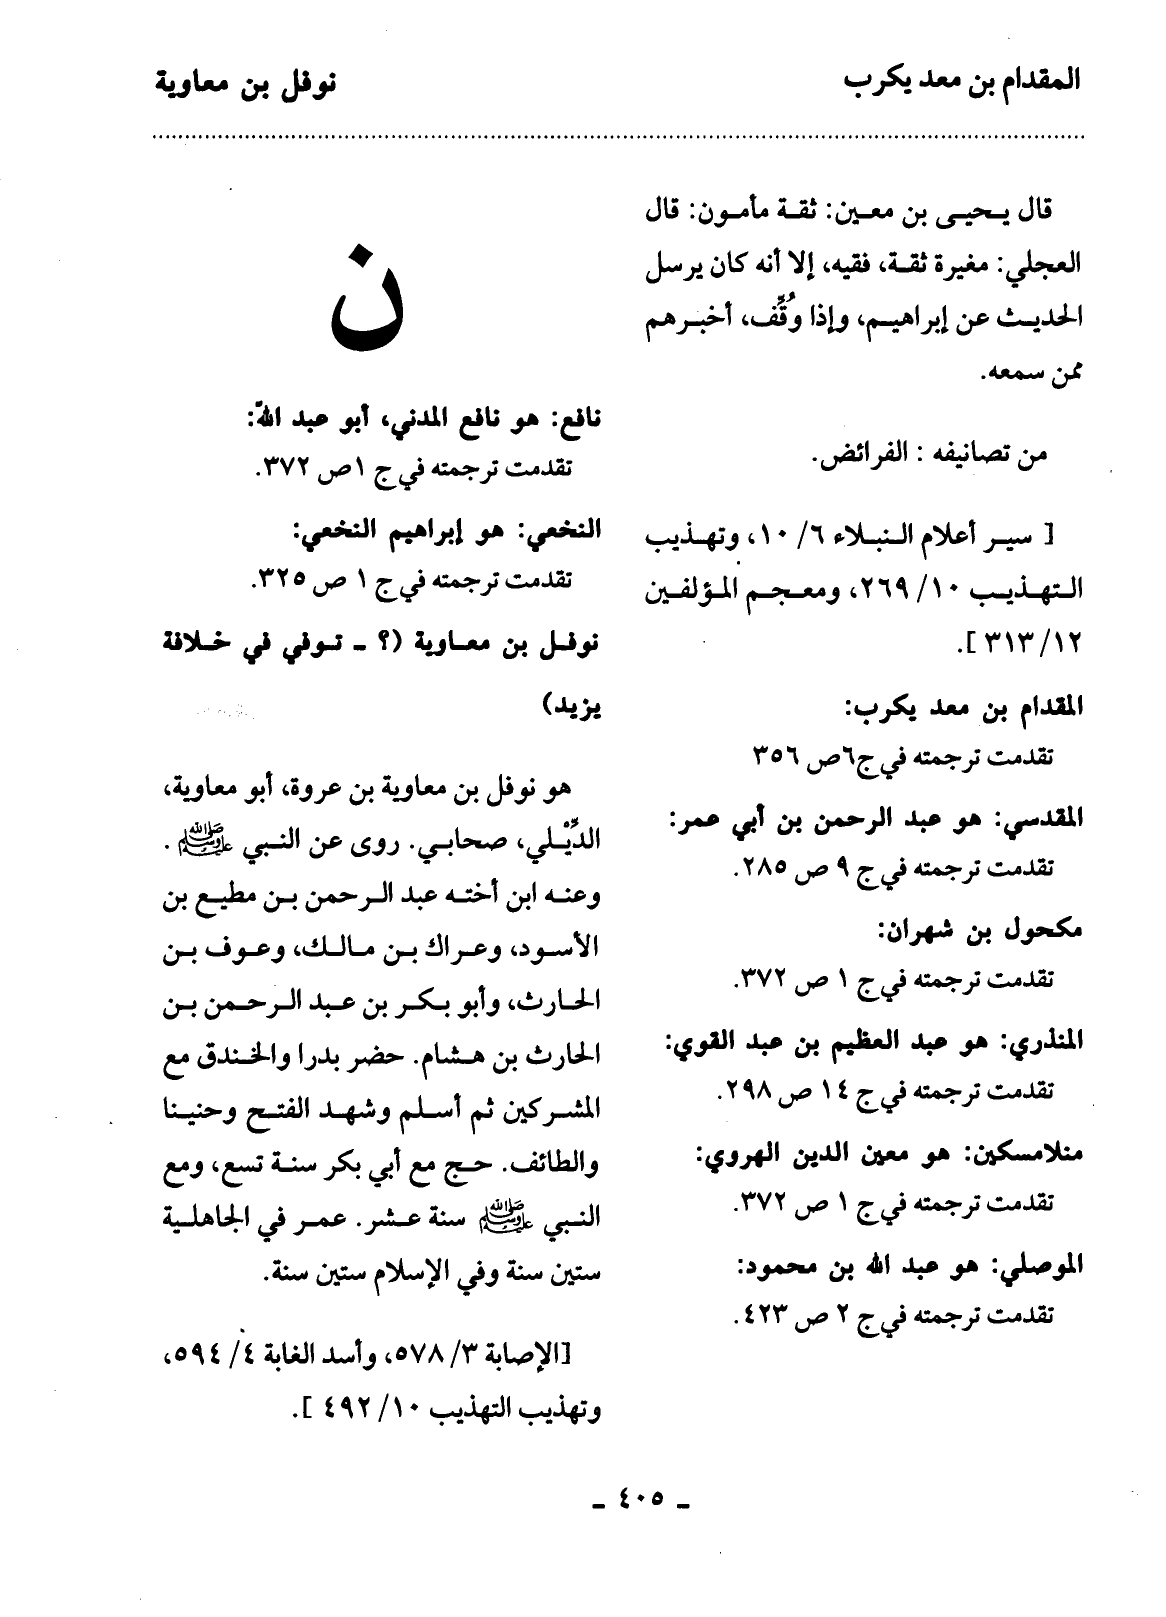 المقدام بن معد يكرب
نوفل بن معاوية
قال يحيى بن معين: ثقة مأمون: قال
العجلي: مغيرة ثقة، فقيه، إلا أنه كان يرسل
الحديث عن إبراهيم، وإذا وُقِّف، أخبرهم
ممن سمعه.
من تصانيفه : الفرائض.
[ سير أعلام النبلاء ٦/ ١٠، وتهذيب
التهذيب ١٠/ ٢٦٩، ومعجم المؤلفين
١٢/ ٣١٣ ].
المقدام بن معد يكرب:
تقدمت ترجمته في ج٦ص ٣٥٦
المقدسي: هو عبد الرحمن بن أبي عمر:
تقدمت ترجمته في ج ٩ ص ٢٨٥.
مكحول بن شهران:
تقدمت ترجمته في ج ١ ص ٣٧٢.
المنذري: هو عبد العظيم بن عبد القوي:
تقدمت ترجمته في ج ١٤ ص ٢٩٨.
منلامسكين: هو معين الدين الهروي:
تقدمت ترجمته في ج ١ ص ٣٧٢.
الموصلي: هو عبد الله بن محمود:
تقدمت ترجمته في ج ٢ ص ٤٢٣.
ن
نافع: هو نافع المدني، أبو عبد الله:
تقدمت ترجمته في ج ١ص ٣٧٢.
النخعي: هو إبراهيم النخعي:
تقدمت ترجمته في ج ١ ص ٣٢٥.
نوفل بن معاوية (؟ ـ توفي في خلافة
يزيد)
هو نوفل بن معاوية بن عروة، أبو معاوية،
الدِّيْلي، صحابي. روى عن النبي ﷺ .
وعنه ابن أخته عبد الرحمن بن مطيع بن
الأسود، وعراك بن مالك، وعوف بن
الحارث، وأبو بكر بن عبد الرحمن بن
الحارث بن هشام. حضر بدرا والخندق مع
المشركين ثم أسلم وشهد الفتح وحنينا
والطائف. حج مع أبي بكر سنة تسع، ومع
النبي ﷺ سنة عشر. عمر في الجاهلية
ستين سنة وفي الإسلام ستين سنة.
[الإصابة ٣/ ٥٧٨، وأسد الغابة ٤/ ٥٩٤،
وتهذيب التهذيب ١٠/ ٤٩٢ ].
ـ ٤٠٥ ـ